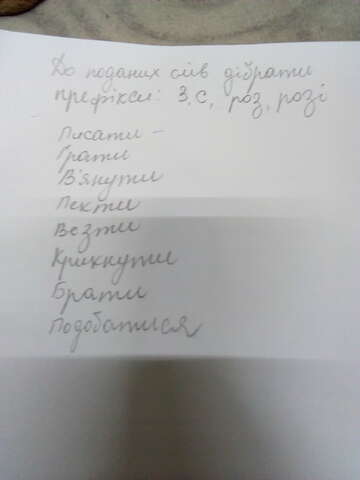 До поданих слів дібрати
префікси: З, с, роз, розі
Писати -
Грати
В'янути
Пекти
Везти
Крикнути
Брати
Подобатися